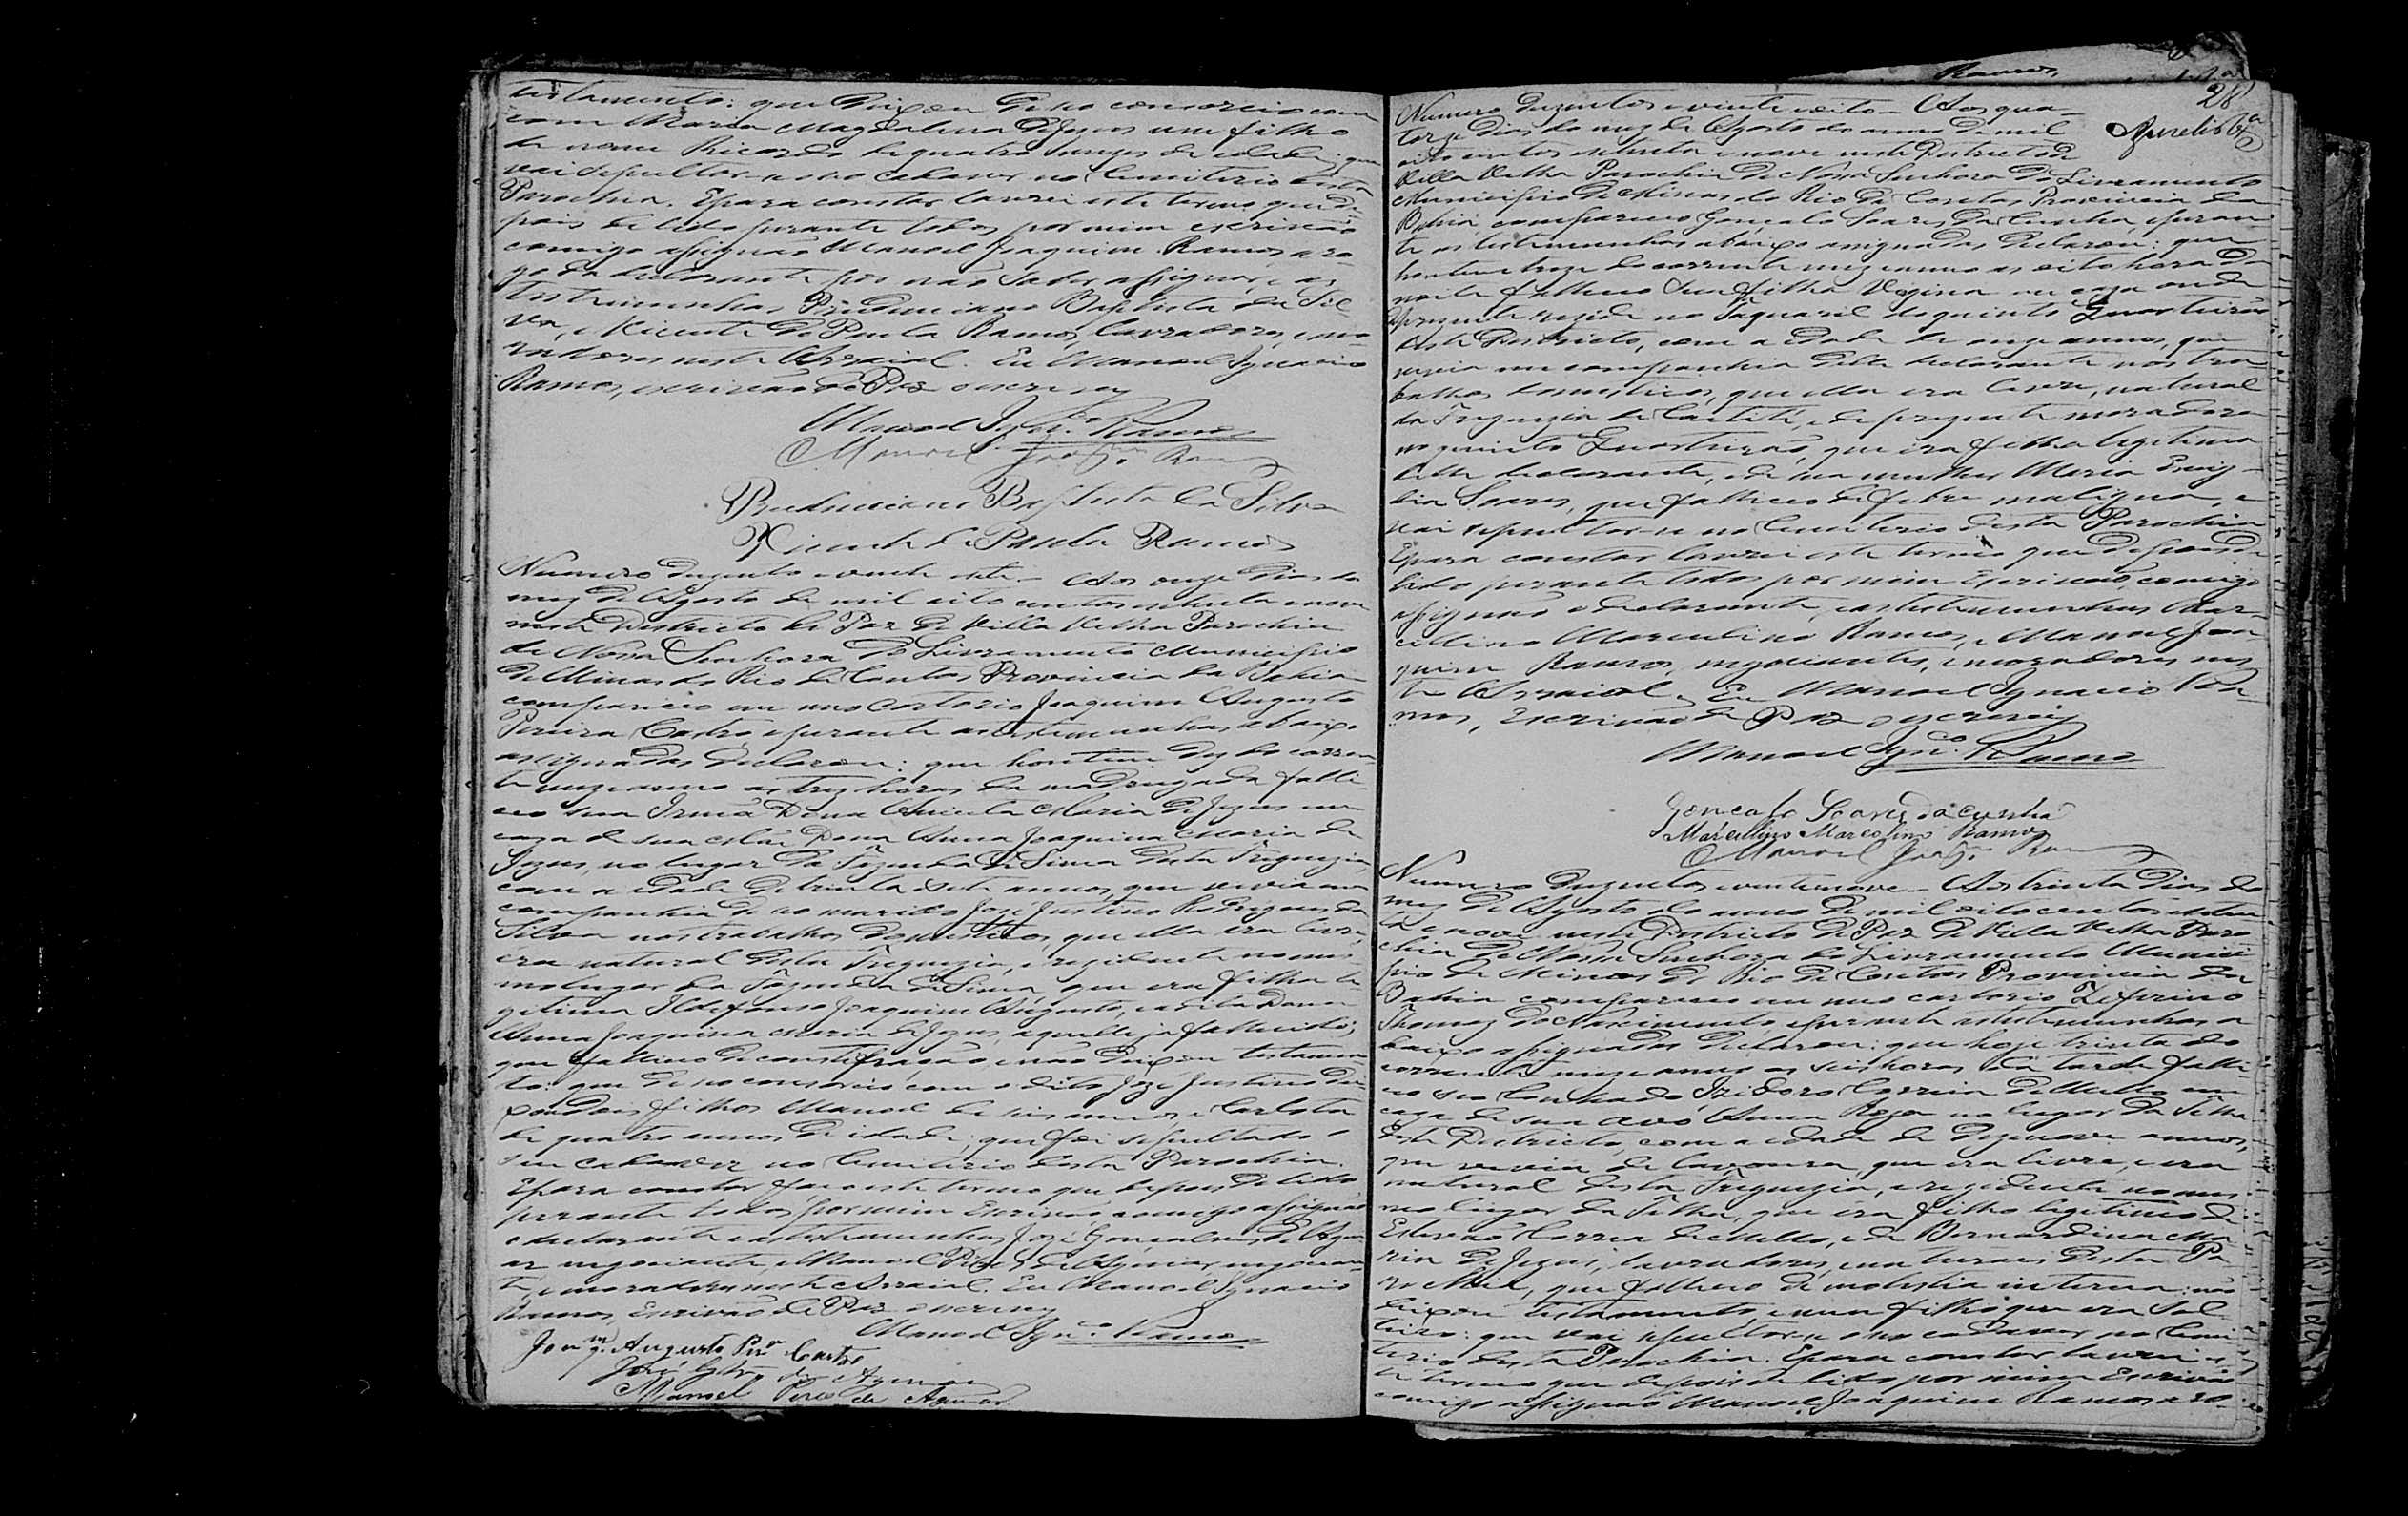 testamento: que deixou de seo consorcio com
com Maria Magdalena de Jesus um filho
de nome Ricardo de quatro mezes de idade; que
vai sepultar-se seo cadaver no Cemiterio desta
Parochia. E para constar lavrei este termo que de
pois de lido perante todos por mim escrivão
comigo assignão Manoel Joaquim Ramos a ro-
go da declarante por não saber assignar, e as
testemunhas Prudenciano Baptista da Sil
va, e Vicente de Paula Ramos, lavradores, e mo-
radores neste Arraial. Eu Manoel Ignacio
Ramos, escrivão de Paz o escrevy
Manoel Ignco. Ramos
Manoel Joaqm. Ramos
Prudenciano Baptista da Silva
Vicente de Paula Ramos
Numero duzentos e vinte sete – Aos onze dias do
mez de Agosto de mil oito centos setenta e nove
neste Districto de Paz de Villa Velha Parochia
de Nossa Senhora do Livramento Municipio
de Minas do Rio de Contas Provincia da Bahia
compareceo em meo Cartorio Joaquim Augusto
Pereira Castro, e perante as testemunhas abaixo
assignadas declarou: que hontem dez do corren
te mez e anno as tres horas da madrugada falle
ceo sua Irmã Dona Maria de Jezus em
caza de sua Mãi Dona Anna Joaquina Maria de
Jezus, no lugar da Fazenda de Sima desta Freguezia,
com a idade de trinta e sete annos, que vivia em
companhia de seo marido José Justino Rodrigues da
Silva nos trabalhos domesticos, que ella era livre,
era natural desta Freguezia, e rezidente no mes
mo lugar da Fazenda de Sima, que era filha le
gitima Ildefonso Joaquim Augusto, e a dita Dona
Anna Joaquina Maria de Jezus, aquelle ja fallecido;
que falleceo de constipação, e não deixou testamen
to: que de seo consorcio com o dito Joze Justino dei
xou dois filhos Manoel de seis annos, e Carlota
de quatro annos de idade; que foi sepultado o
seu cadaver no Cemiterio desta Parochia.
E para constar faço este termo que depois de lido
perante todos por mim Escrivão, comigo assignão
o declarante e as testemunhas José Gonçalves de Agui
ar negociante, e Manoel Pires de Aguiar, negocian
te, e moradores neste Arraial. Eu Manoel Ignacio
Ramos, Escrivão de Paz o escrevy
Manoel Ignco. Ramos
Joaqm. Augusto Pra. Castro
José Glz. de Aguiar
Manoel Pires de Aguiar
28
Numero duzentos e vinte e oito – Aos qua-
torze dias do mez de Agosto do anno de mil
oito centos setenta e nove neste Districto de
Villa Velha Parochia de Nossa Senhora do Livramento
Municipio de Minas do Rio de Contas Provincia da
Bahia compareceo Gonçalo Soares da Cunha, e peran
te as testemunhas abaixo assignadas declarou: que
hontem treze do corrente mez e anno as oito horas da
noite falleceo sua filha Regina em caza onde
no quinto Quarteirão
deste Districto, com a idade de onze annos, que
vivia em companhia delle declarante nos tra
balhos domesticos, que ella era livre, natural
da Freguezia de Caetité, e de prezente moradora
no quinto Quarteirão, que era filha legitima
delle declarante, e de sua mulher Maria Emig
dia Soares, que falleceo de febre maligna, e
vai sepultar-se no Cemiterio desta Parochia
E para constar lavrei este termo que depois de
lido perante todos por mim Escrivão, comigo
assignão o declarante, e as testemunhas Mar-
cellino Marcolino Ramos, e Manoel Joa
quim Ramos, negociantes, e moradores nes
te Arraial. Eu Manoel Ignacio Ra-
mos, Escrivão de Paz o escrevy
Manoel Ignco. Ramos
Goncalo Soares da Cunha
Marcellino Marcolino Ramos
Manoel Joaqm. Ramos
Numero duzentos e vinte nove – Aos trinta dias do
mez de Agosto do anno de mil oito centos e seten
ta e nove neste Districto de Paz de Villa Velha Paro
chia de Nossa Senhora do Livramento Munici
pio de Minas do Rio de Contas Provincia da
Bahia compareceo em meo cartorio Zeferino
Thomaz do Nascimento, e perante as testemunhas a
baixo assignadas declarou: que hoje trinta do
corrente mez e anno as seis horas da tarde falle-
ceo seo Cunhado Izidoro Correia de Mello em
caza de sua avó Anna Roza no lugar da
deste Districto, com a idade de dezenove annos,
que vivia de lavoura, que era livre, e era
natural desta Freguezia, e rezidente no mes
mo lugar da que era filho legitimo de
Estevão Correa de Mello, e de Bernardina Ma
ria de Jezus, lavradores, e naturaes desta Pa
rochia, que falleceo de molestia interna: não
deixou testamento, e nem filhos que era Sol
teiro: que vai sepultar-se o seo cadaver no Cemi
terio desta Parochia. E para constar lavrei es
te termo que depois de lido por mim Escrivão
comigo assignão Manoel Joaquim Ramos a ro-